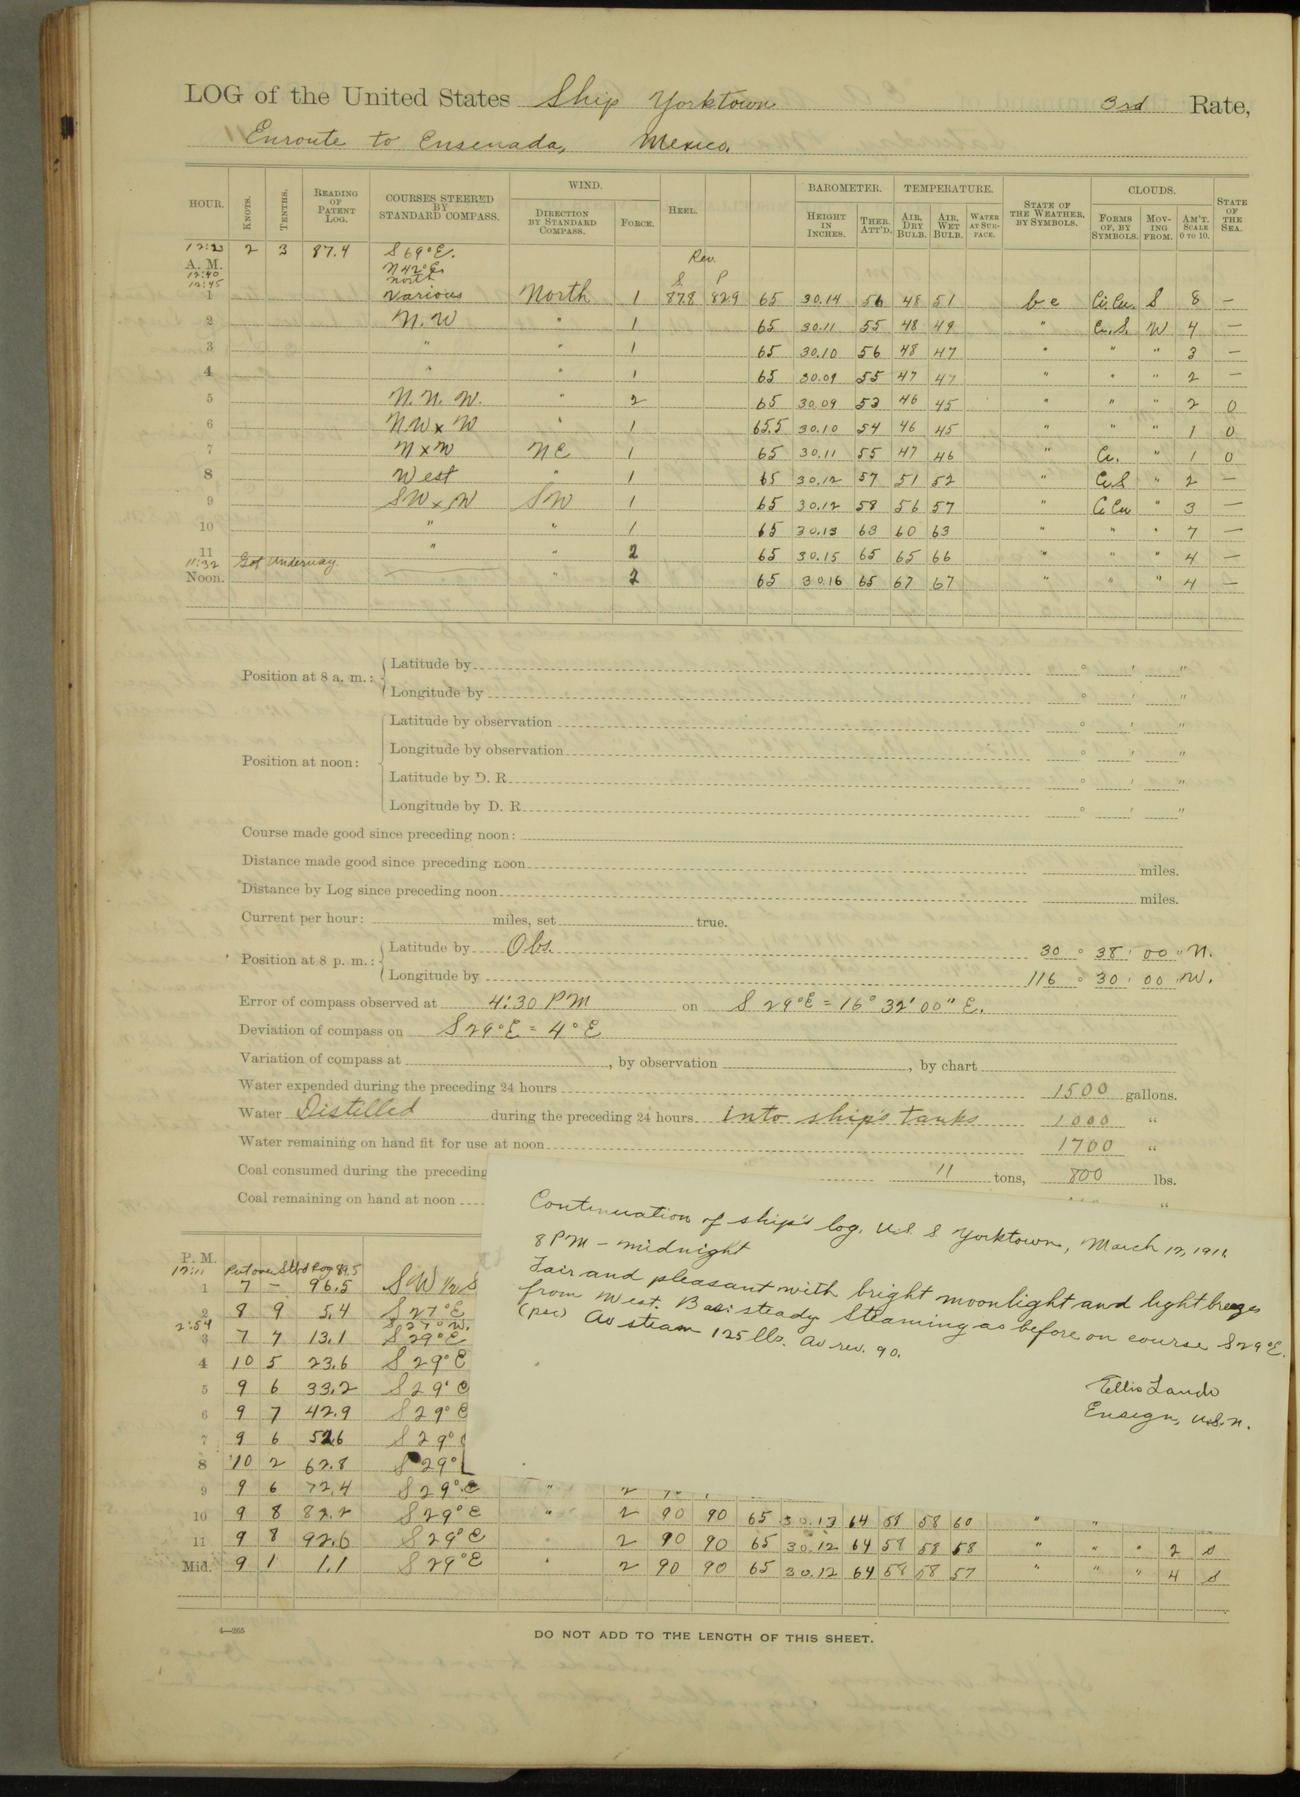 LOG of the United States Ship Yorktown 3rd Rate,
Enroute to Ensenada, Mexico.
HOUR. KNOTS. TENTHS. READING OF PATENT LOG. COURSES STEERED BY STANDARD COMPASS. WIND. DIRECTION BY STANDARD COMPASS. FORCE. HEEL. BAROMETER. HEIGHT IN INCHES. THER. ATT'D. TEMPERATURE. AIR, DRY BULB. AIR, WET BULB. WATER AT SURFACE. STATE OF THE WEATHER, BY SYMBOLS. CLOUDS. FORMS OF, BY SYMBOLS. MOVING FROM. AM'T. SCALE 0 TO 10. STATE OF THE SEA.
12:20 2 3 87.4 S 69°E.
A. M. N 42°E Rev.
12:40 North S P
12:45
1 Various North 1 87.8 82.9 65 30.14 56 48 51 b c Ci.Cu. S 8 —
2 N.W " 1 65 30.11 55 48 49 " Cu.S. W 4 —
3 " " 1 65 30.10 56 48 47 " " " 3 —
4 " " 1 65 30.09 55 47 47 " " " 2 —
5 N.N.W. " 2 65 30.09 53 46 45 " " " 2 0
6 NWxW " 1 65.5 30.10 54 46 45 " " " 1 0
7 NxW NE 1 65 30.11 55 47 46 " Cu. " 1 0
8 West " 1 65 30.12 57 51 52 " Cu.S " 2 —
9 SWxW SW 1 65 30.12 58 56 57 " Ci Cu " 3 —
10 " " 1 65 30.13 63 60 63 " " " 7 —
11 " " 2 65 30.15 65 65 66 " " " 4 —
11:32 Got Underway.
Noon. — " 2 65 30.16 65 67 67 " " " 4 —
Position at 8 a. m.: Latitude by ° ' "
Longitude by ° ' "
Position at noon: Latitude by observation ° ' "
Longitude by observation ° ' "
Latitude by D. R. ° ' "
Longitude by D. R. ° ' "
Course made good since preceding noon:
Distance made good since preceding noon miles.
Distance by Log since preceding noon miles.
Current per hour: miles, set true.
Position at 8 p. m.: Latitude by Obs. 30 ° 38 ' 00 " N.
Longitude by 116 ° 30 ' 00 " W.
Error of compass observed at 4:30 PM on S 29°E = 16° 32' 00" E.
Deviation of compass on S29°E = 4°E
Variation of compass at , by observation , by chart
Water expended during the preceding 24 hours 1500 gallons.
Water Distilled during the preceding 24 hours into ship's tanks 1000 "
Water remaining on hand fit for use at noon 1700 "
Coal consumed during the preceding 11 tons, 800 lbs.
Coal remaining on hand at noon "
Continuation of ship's log, U.S.S Yorktown, March 12, 1911
8 PM - midnight
Fair and pleasant with bright moonlight and light breezes
from West. Bar: steady Steaming as before on course S29°E.
(psc) Av steam 125 lbs. av rev. 90.
Ellis Lando
Ensign, U.S.N.
P. M.
12:11 Put over Stbd Log 89.5
1 7 — 96.5 SW 1/2 S
2 8 9 5.4 S 27°E
2:54 S 27° W.
3 7 7 13.1 S 29°E
4 10 5 23.6 S 29°E
5 9 6 33.2 S 29°E
6 9 7 42.9 S 29°E
7 9 6 52.6 S 29°
8 10 2 62.8 S 29°
9 9 6 72.4 S 29°E " 2
10 9 8 82.2 S 29°E " 2 90 90 65 30.13 64 58 58 60 " "
11 9 8 92.0 S 29°E " 2 90 90 65 30.12 64 58 58 58 " " " 2 S
Mid. 9 1 1.1 S 29°E " 2 90 90 65 30.12 64 58 58 57 " " " 4 S
4—265
DO NOT ADD TO THE LENGTH OF THIS SHEET.